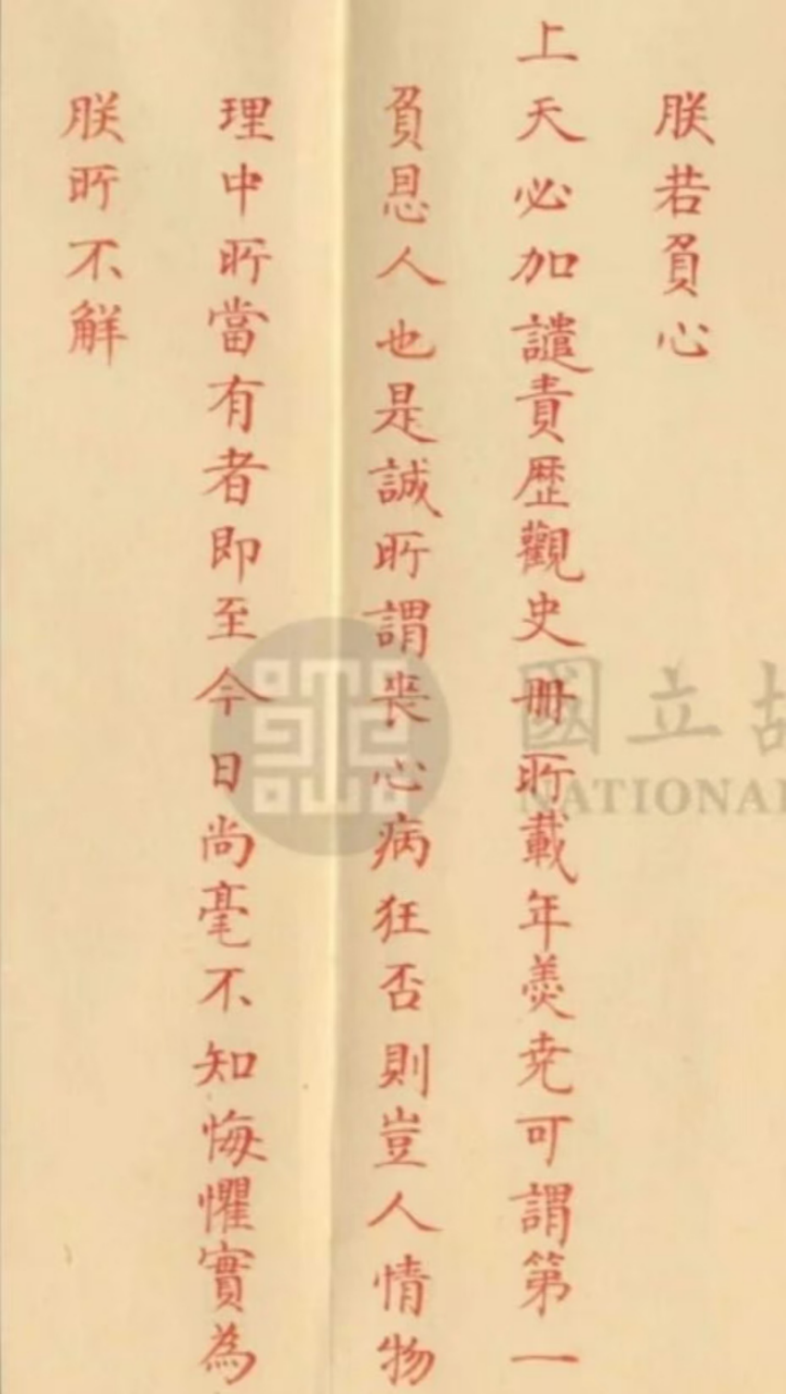 朕若負心
上天必加譴責歷觀史冊所載年羹堯可謂第一
負恩人也是誠所謂喪心病狂否則豈人情物
理中所當有者即至今日尚毫不知悔懼實為
朕所不解
國立故
NATIONAL